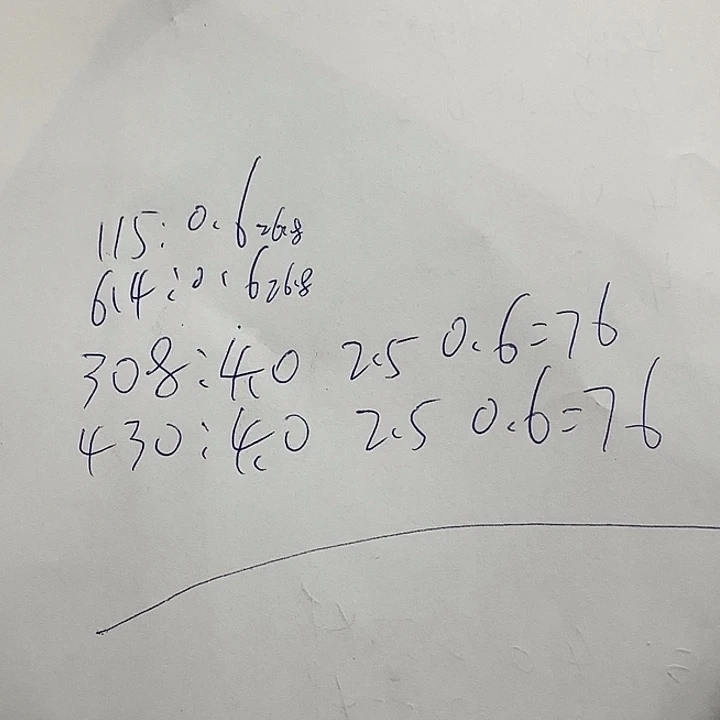 115: 0.6 268
614: 0.6 268
308: 4.0 2.5 0.6=76
430: 4.0 2.5 0.6=76